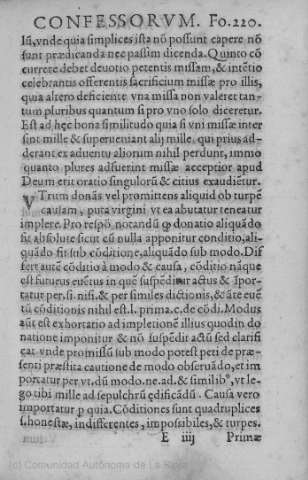 CONFESSORVM. Fo.220.
Iũ, vnde quia simplices ista nõ possunt capere nõ
sunt prædicanda nec passim dicenda. Quinto cõ
currere debet deuotio petentis missam, & intẽtio
celebrantis offerentis sacrificium missæ pro illis,
quia altero deficiente vna missa non valeret tan-
tum pluribus quantum si pro vno solo diceretur.
Est ad hęc bona similitudo quia si vni missæ inter
sint mille & superueniant alij mille, qui prius ad-
derant ex aduentu aliorum nihil perdunt, immo
quanto plures adfuerint missæ acceptior apud
Deum erit oratio singulorũ & citius exaudietur.
VTrum donãs vel promittens aliquid ob turpẽ
causam, puta virgini vt ea abutatur teneatur
implere. Pro respõ. notandũ ꝙ donatio aliquãdo
fit absolute sicut cũ nulla apponitur conditio, ali-
quãdo fit sub cõditione, aliquãdo sub modo. Dif
fert autẽ cõditio à modo & causa, cõditio nãque
est futurus euẽtus in quẽ suspẽditur actus & ĩpor-
tatur per. si. nisi. & per similes dictionis, & ãte euẽ
tũ cõditionis nihil est. l. prima. c. de cõdi. Modus
aũt est exhortatio ad impletionẽ illius quod in do
natione imponitur & nõ suspẽdit actũ sed clarifi
cat vnde promissũ sub modo potest peti de præ-
senti præstita cautione de modo obseruãdo, et im
portatur per vt. dũ modo. ne. ad. & similibꝰ, vt le-
go tibi mille ad sepulchrũ ędificãdũ. Causa vero
importatur p quia. Cõditiones sunt quadruplices
s. honestæ, indifferentes, imposibiles, & turpes.
E iiij Primæ
(c) Comunidad Autónoma de La Rioja